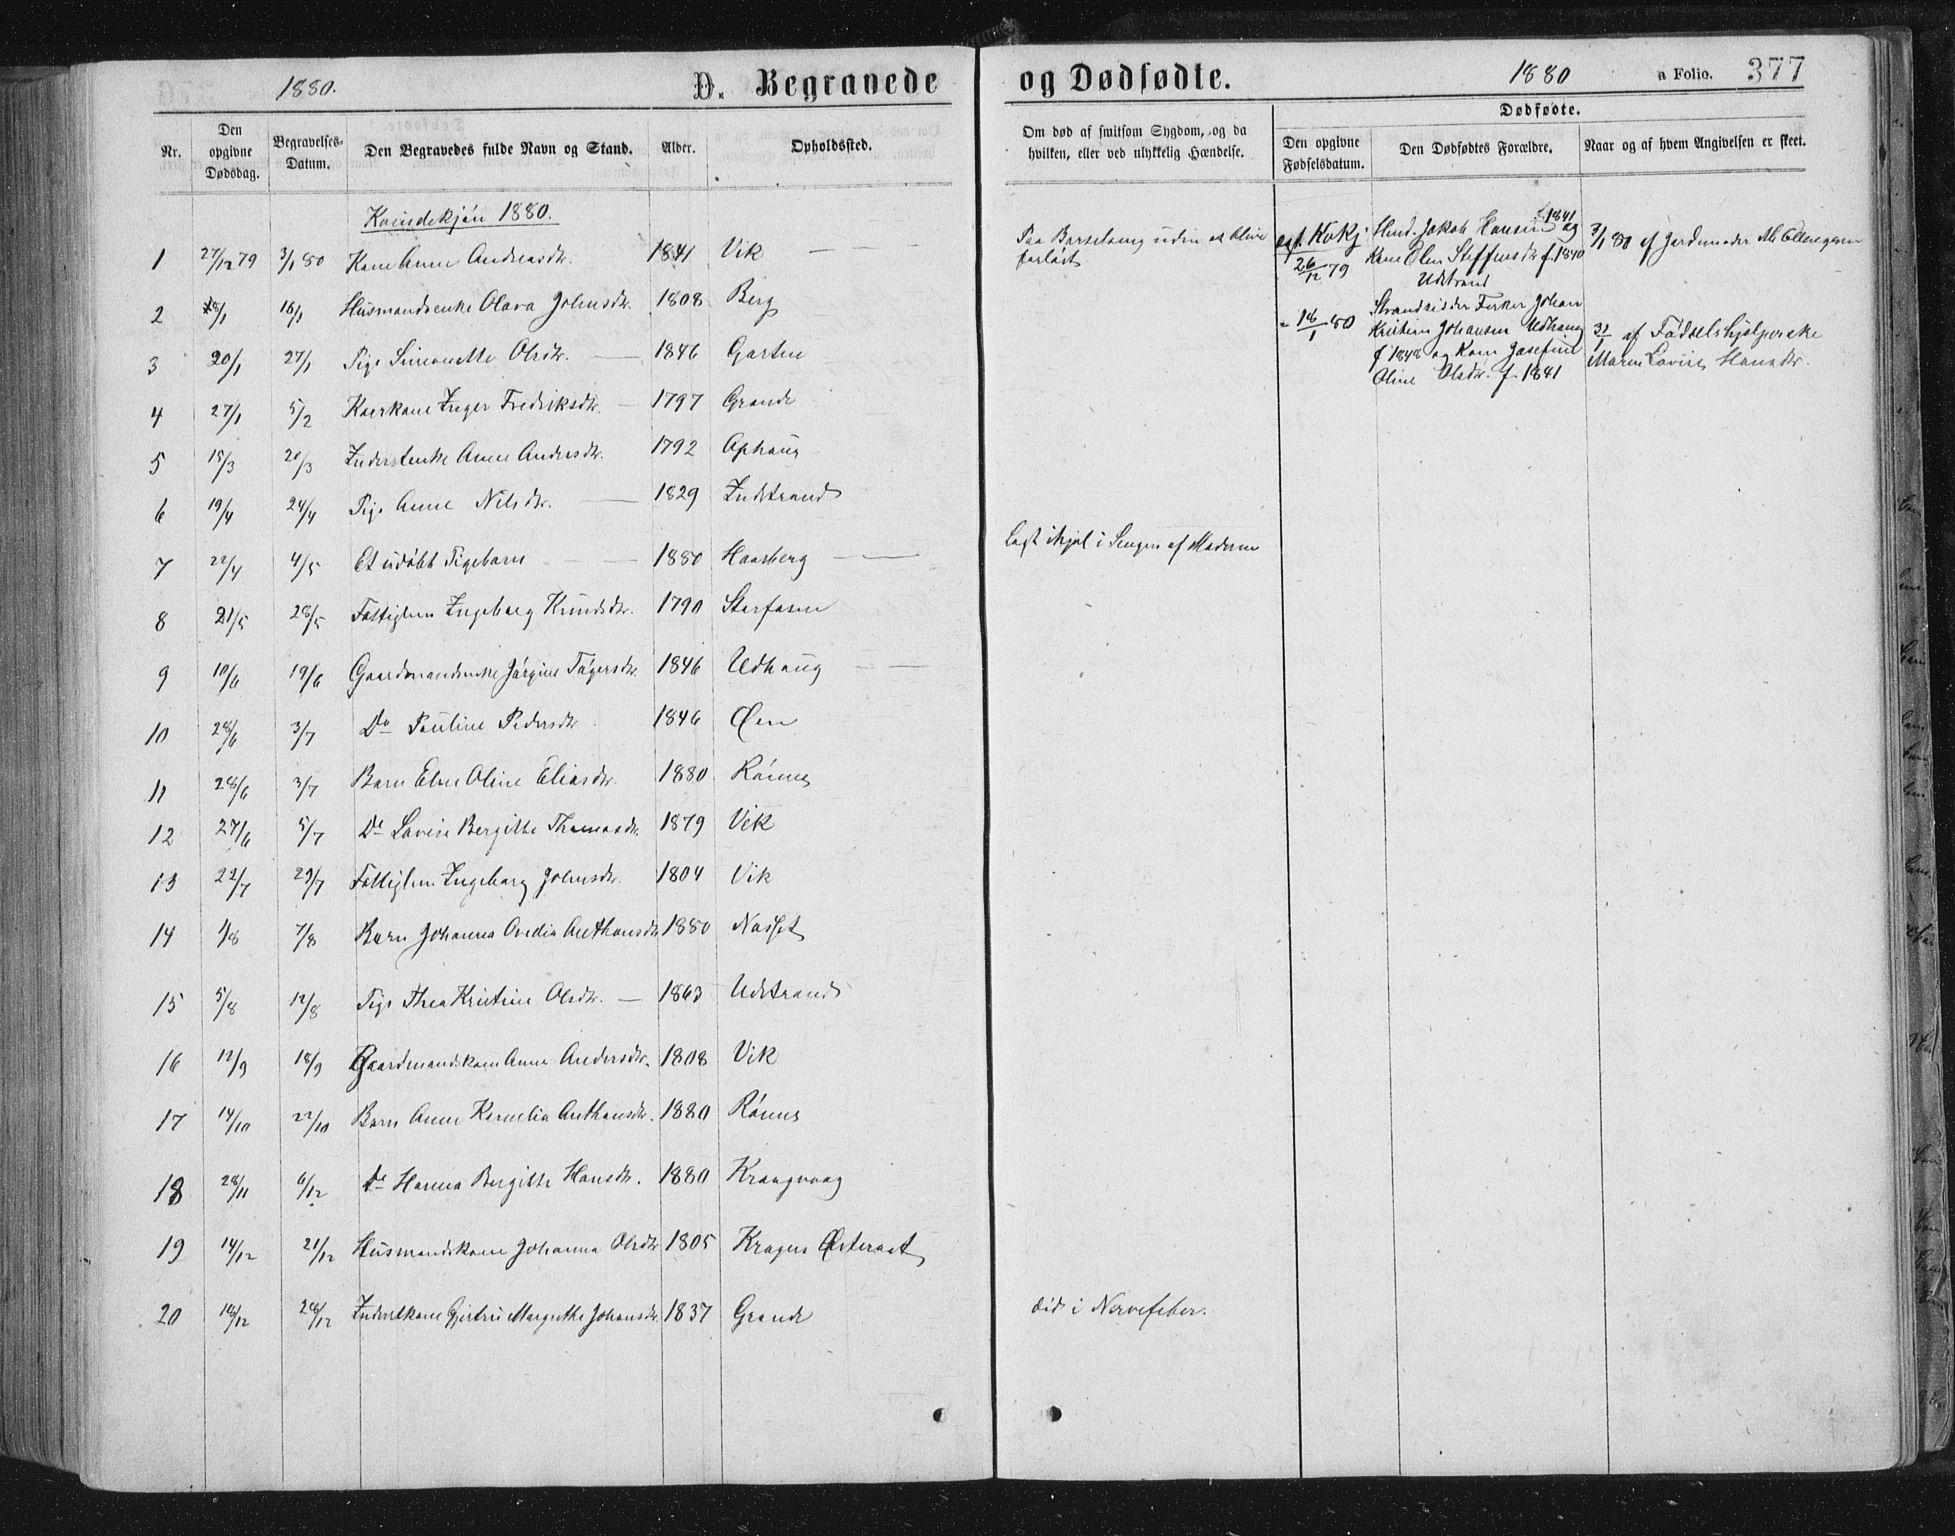 1880.
D. Begravede og Dødfødte.
1880
a Folio. 377
Nr.
Den opgivne Dødsdag.
Begravelses-Datum.
Den Begravedes fulde Navn og Stand.
Alder.
Opholdssted.
Om død af smitsom Sygdom, og da hvilken, eller ved ulykkelig Hændelse.
Dødfødte.
Den opgivne Fødselsdatum.
Den Dødfødtes Forældre.
Naar og af hvem Angivelsen er skeet.
Kvindekjön 1880.
1 27/12 79 3/1 80 Kone Anne Andreasdr. 1841 Vik
2 18/1 Husmandsenke Olava Johnsdr. 1808 Berg
3 20/1 27/1 Pige Simonette Olsdr. 1846 Garten
4 27/1 5/2 Kaarkone Inger Fredriksdr. 1797 Grande
5 15/3 20/3 Inderstenke Anne Andersdr. 1792 Ophaug
6 19/4 24/4 Pige Anne Nilsdr. 1829 Indstrand
7 22/4 4/5 Et udöbt Pigebarn 1880 Haasberg
8 21/5 28/5 Fattiglem Ingeborg Knudsdr. 1790 Storfosen
9 10/6 19/6 Gaardmandsenke Jörgine 1846 Udhaug
10 28/6 3/7 Do Pauline Pedersdr. 1846 Öen
11 28/6 3/7 Barn Elen Oline Eliasdr. 1880 Rönne
12 27/6 5/7 Do Lovise Bergitte Thomasdr. 1879 Vik
13 22/7 29/7 Fattiglem Ingeborg Johnsdr. 1804 Vik
14 1/8 7/8 Barn Johanna Ovedia Anthonsdr. 1880 Næsset
15 5/8 12/8 Pige Thea Kristine Olsdr. 1863 Udstrand
16 12/9 18/9 Gaardmandskone Anne Andersdr. 1808 Vik
17 14/10 22/10 Barn Anne Kornelia Anthonsdr. 1880 Rönne
18 28/11 6/12 Do Hanna Bergitte Hansdr. 1880 Kraagvaag
19 14/12 21/12 Husmandskone Johanna Olsdr. 1805 Österaat
20 18/12 28/12 Inderstkone Gjertru Margrethe Johansdr. 1837 Grande
Paa Barselseng uden at blive
forløst
ihjel i Sengen af Moderen
död i Nervefeber.
Kvkj
26/12 79
Jakob Hansen f. 1841 og
Kone Olen Steffensdr. f. 1840
Udstrand
3/1 80 af Jordemoder
18/1 80
Strandsidder Fisker Johan
Kristian Johansen Udhaug
f 1848 og Kone Josefine
Oline Olsdr. f. 1841
31/1 af Födselshjelperske
Maren Lovise Hansdr.